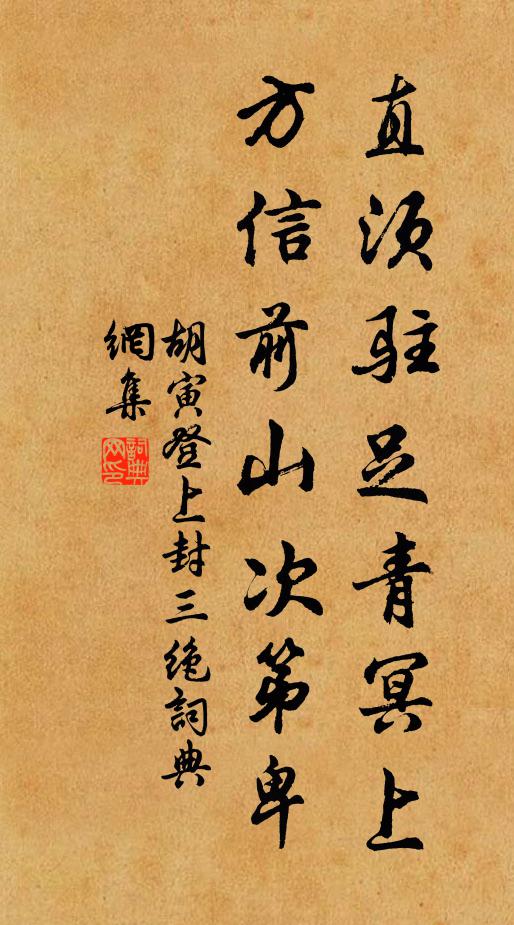 直須駐足青冥上
方信前山次第卑
胡寅登上封三絶詞典
網集
詞典
网印